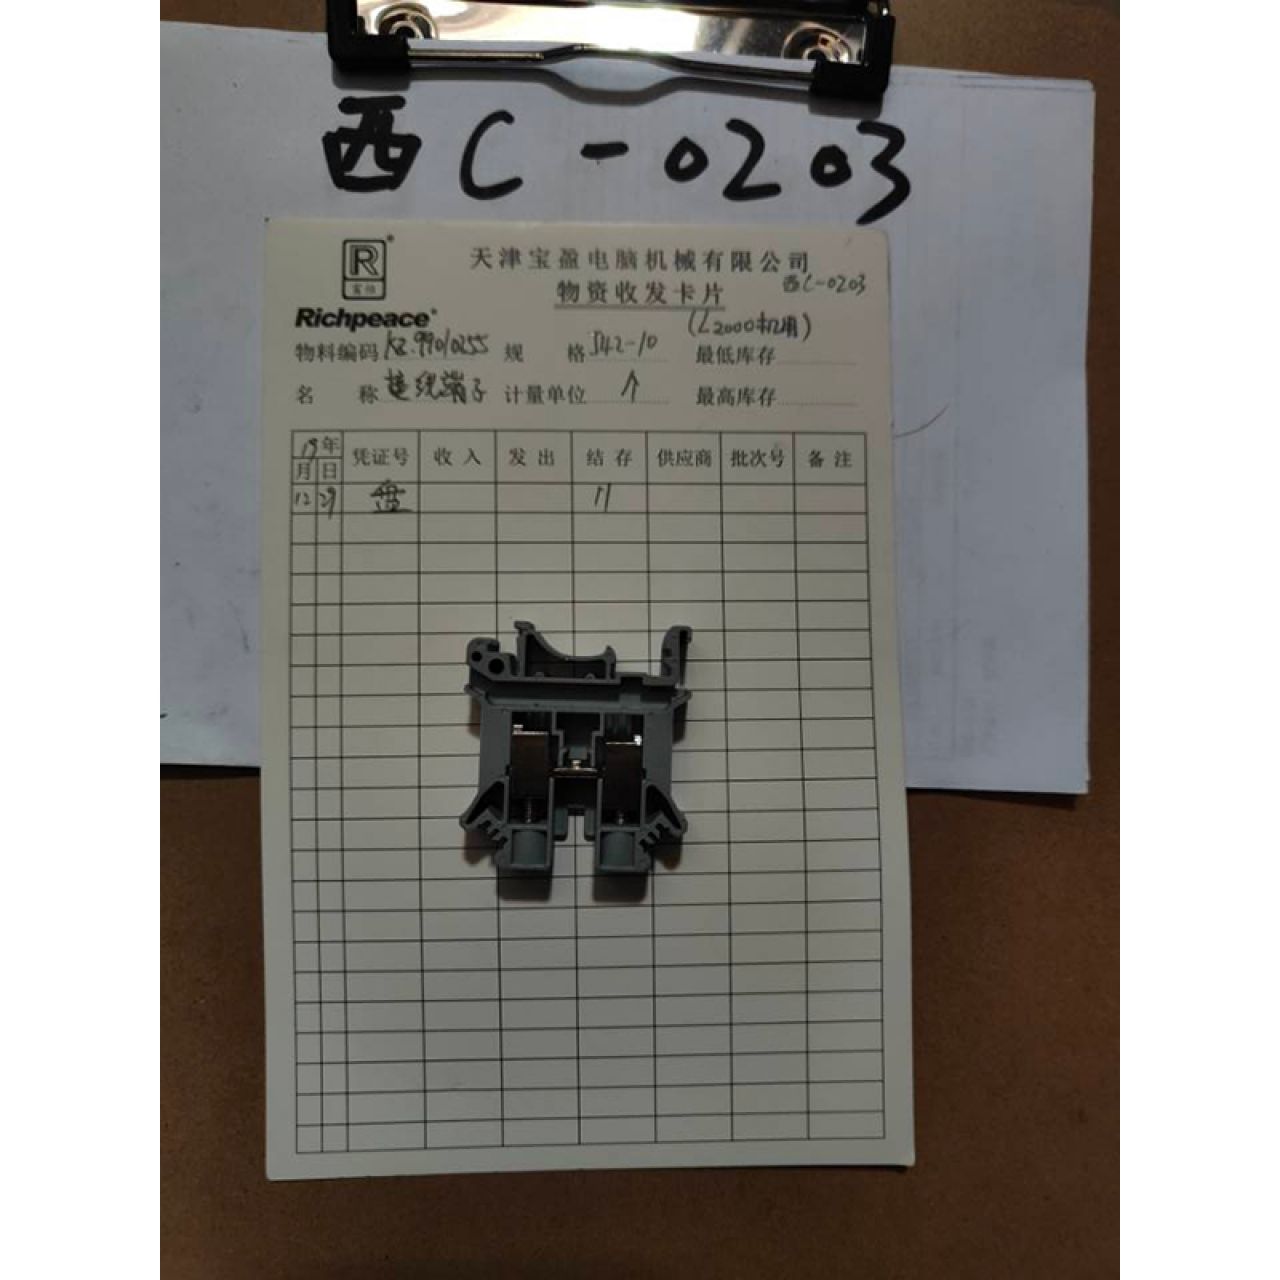 西C-0203
R
富怡
天津宝盈电脑机械有限公司
西C-0203
物资收发卡片
Richpeace
(L2000机用)
物料编码 KZ.99010255 规格 最低库存
名称 接线端子 计量单位 个 最高库存
19年 凭证号 收入 发出 结存 供应商 批次号 备注
月 日
12 29 盘 11